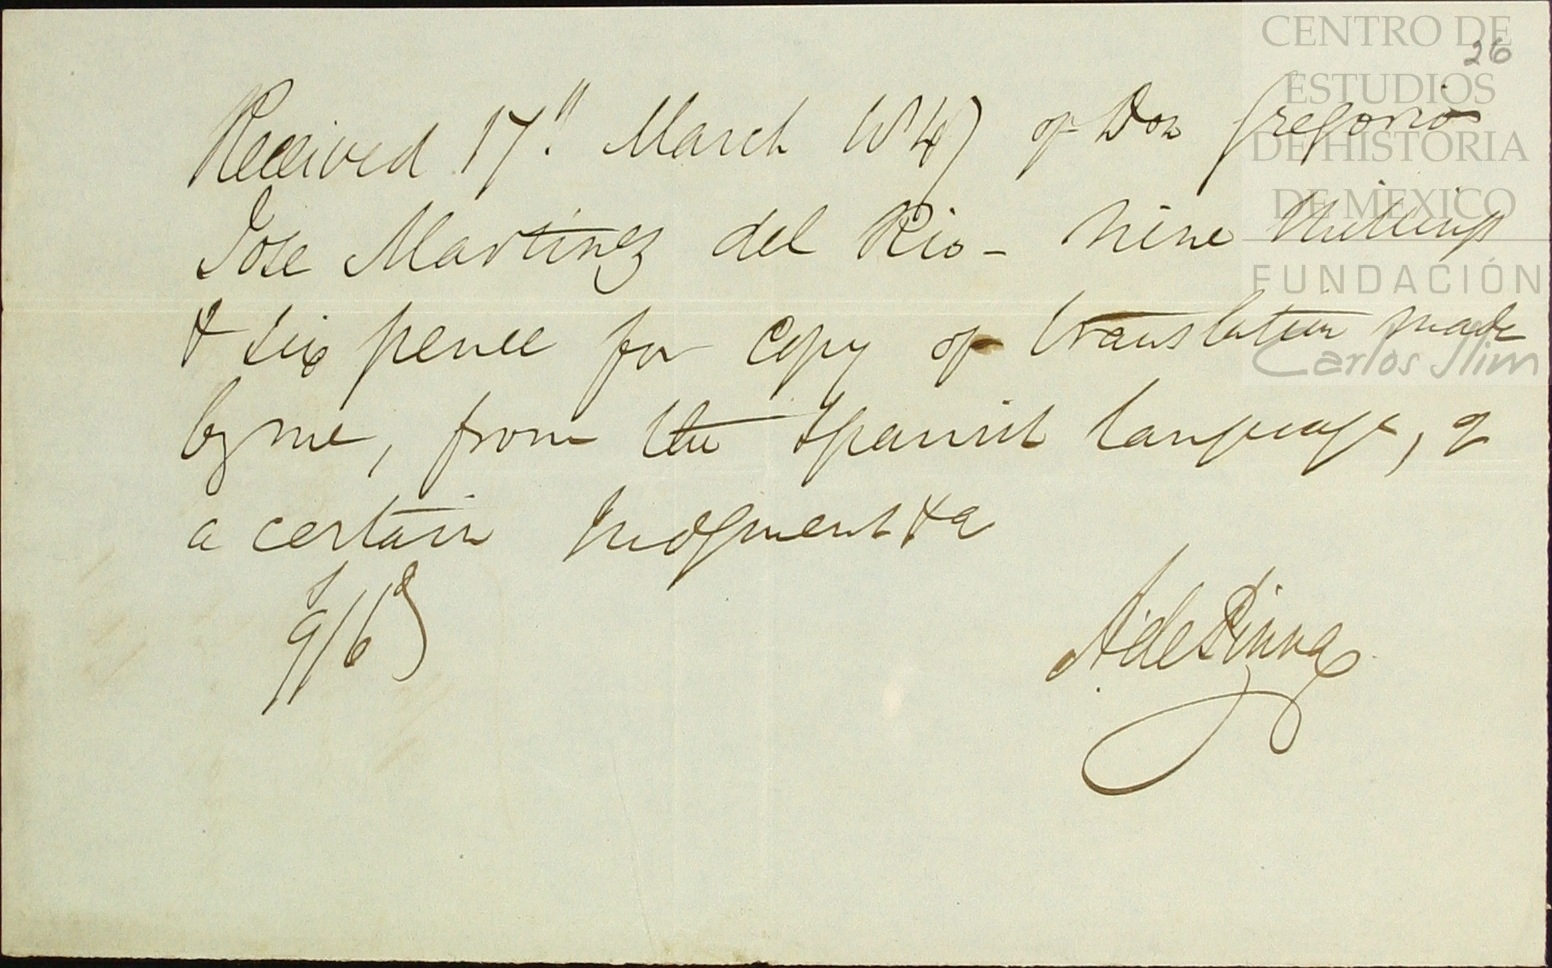 26
CENTRO DE
ESTUDIOS
DE HISTORIA
DE MEXICO
FUNDACIÓN
Carlos Slim
Received 17" March 1847 of Don Gregorio
Jose Martinez del Rio - nine shillings
& six pence for copy of translation made
by me, from the Spanish language, of
a certain Judgment &a
9/6
A de Pinna